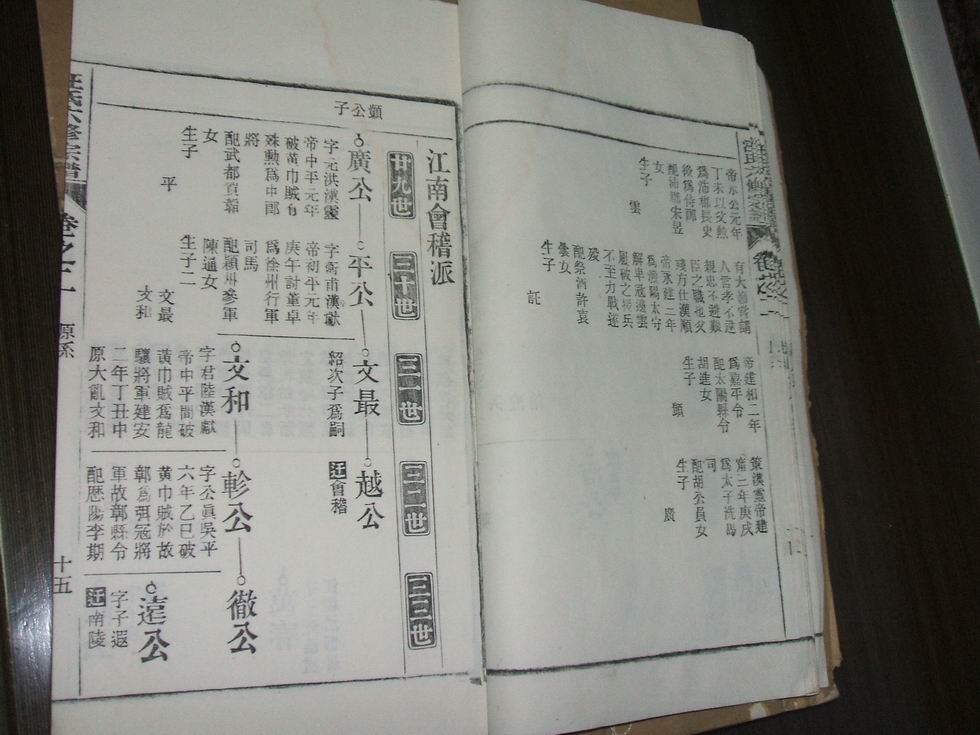 帝永公元年
丁未以父勲
爲沛郡長史
後爲侍郎
配沛縣宋昱
女
生子 雲
有大節嘗謂
人言孝不違
親忠不避艱
臣之職也父
殘方仕漢順
帝永建二年
爲漁陽太守
解卑寇邊雲
屢破之 兵
不至力戰遂
歿
配祭酒許袁
曇女
生子 託
帝建和二年
爲嘉平令
配太陽縣令
胡進女
生子 顗
策漢靈帝建
甯二年庚戌
爲太子洗馬
司
配胡公員女
生子 廣
江南會稽派
廿九世 三十世 三一世 三二世 三三世
顗公子
廣公
字 洪漢靈
帝中平元年
破黄巾賊有
殊勲爲中郎
將
配武都 韜
女
生子 平
平公
字衛甫漢獻
帝初平元年
庚午討董卓
爲徐州行軍
司馬
配穎州參軍
陳通女
生子二 文最
文和
文最
紹次子爲嗣
越公
迁會稽
文和
字君陸漢獻
帝中平間破
黄巾賊爲龍
驤將軍建安
二年丁丑中
原大亂文和
軫公
字公眞吳平
六年乙巳破
黄巾賊於故
鄣爲弭冠將
軍故鄣縣令
配歷陽李期
徹公
遠公
字子遐
迁南陵
汪氏六修宗譜 卷之二 源系 十五